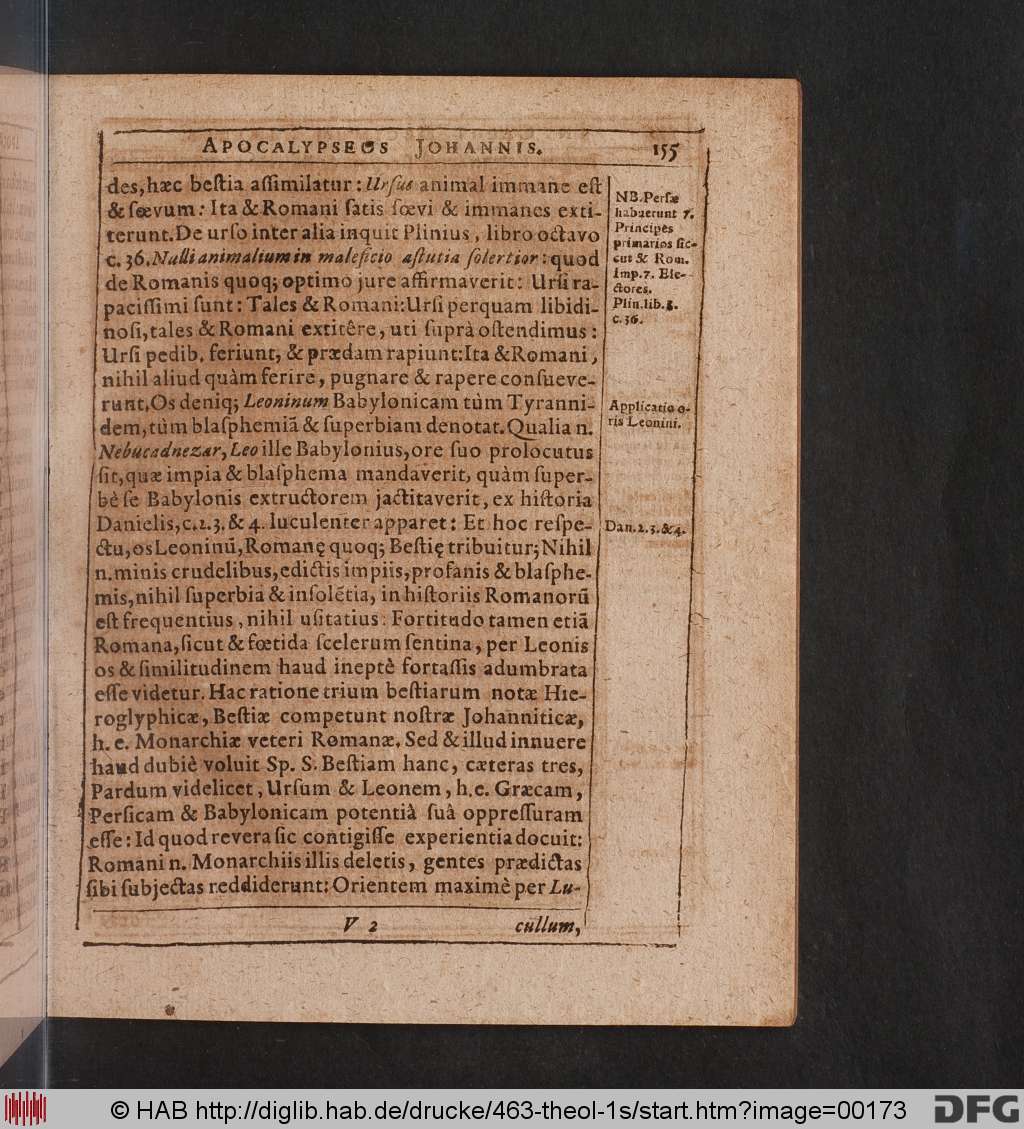 APOCALYPSEOS JOHANNIS. 155
des, hæc beſtia aſſimilatur: Urſus animal immane eſt
& ſœvum: Ita & Romani ſatis ſœvi & immanes exti-
terunt. De urſo inter alia inquit Plinius, libro octavo
c. 36. Nulli animalium in maleficio aſtutia ſolertior: quod
de Romanis quoq; optimo jure affirmaverit: Urſi ra-
paciſſimi ſunt: Tales & Romani: Urſi perquam libidi-
noſi, tales & Romani extitêre, uti ſuprà oſtendimus:
Urſi pedib. feriunt, & prædam rapiunt: Ita & Romani,
nihil aliud quàm ferire, pugnare & rapere conſueve-
runt, Os deniq; Leoninum Babylonicam tùm Tyranni-
dem, tùm blaſphemiã & ſuperbiam denotat. Qualia n.
Nebucadnezar, Leo ille Babylonius, ore ſuo prolocutus
ſit, quæ impia & blaſphema mandaverit, quàm ſuper-
bè ſe Babylonis extructorem jactitaverit, ex hiſtoria
Danielis, c. 2. 3. & 4. luculenter apparet: Et hoc reſpe-
ctu, os Leoninũ, Romanę quoq; Beſtię tribuitur; Nihil
n. minis crudelibus, edictis impiis, profanis & blaſphe-
mis, nihil ſuperbia & inſolẽtia, in hiſtoriis Romanorũ
eſt frequentius, nihil uſitatius: Fortitudo tamen etiã
Romana, ſicut & fœtida ſcelerum ſentina, per Leonis
os & ſimilitudinem haud ineptè fortaſſis adumbrata
eſſe videtur. Hac ratione trium beſtiarum notæ Hie-
roglyphicæ, Beſtiæ competunt noſtræ Johanniticæ,
h. e. Monarchiæ veteri Romanæ. Sed & illud innuere
haud dubiè voluit Sp. S. Beſtiam hanc, cæteras tres,
Pardum videlicet, Urſum & Leonem, h. e. Græcam,
Perſicam & Babylonicam potentià ſuâ oppreſſuram
eſſe: Id quod revera ſic contigiſſe experientia docuit:
Romani n. Monarchiis illis deletis, gentes prædictas
ſibi ſubjectas reddiderunt: Orientem maximè per Lu-
V 2 cullum,
NB. Perſæ
habuerunt 7.
Principes
primarios ſic-
cut & Rom.
Imp. 7. Ele-
ctores.
Plin. lib. 8.
c. 36.
Applicatio o-
ris Leonini.
Dan. 2. 3. & 4.
© HAB http://diglib.hab.de/drucke/463-theol-1s/start.htm?image=00173
DFG